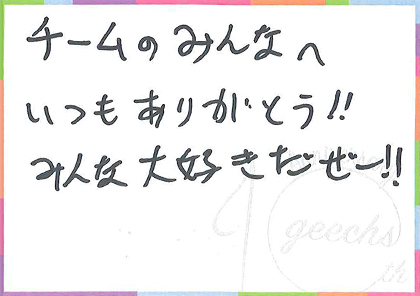 チームのみんなへ
いつもありがとう!!
みんな大好きだぜー!!
geechs
th